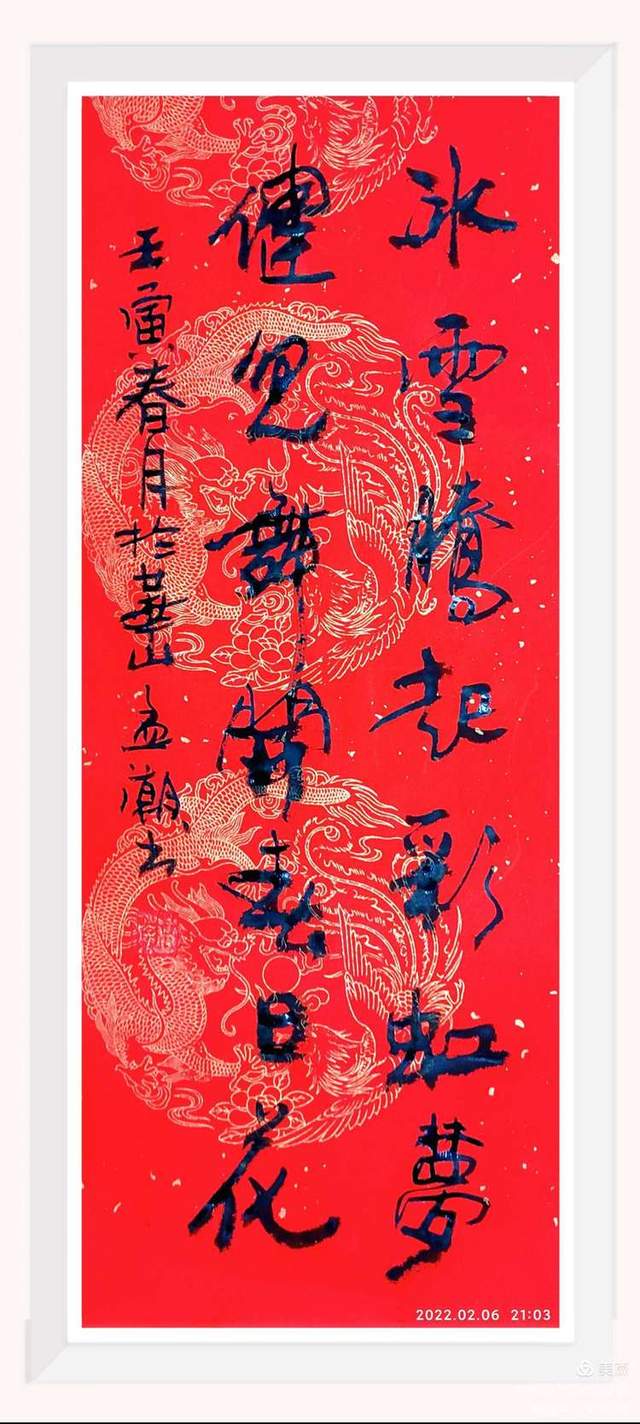 氷雪騰起彩虹夢
健兒舞開春日花
壬寅春月於華山 孟潮书
2022.02.06 21:03
美篇